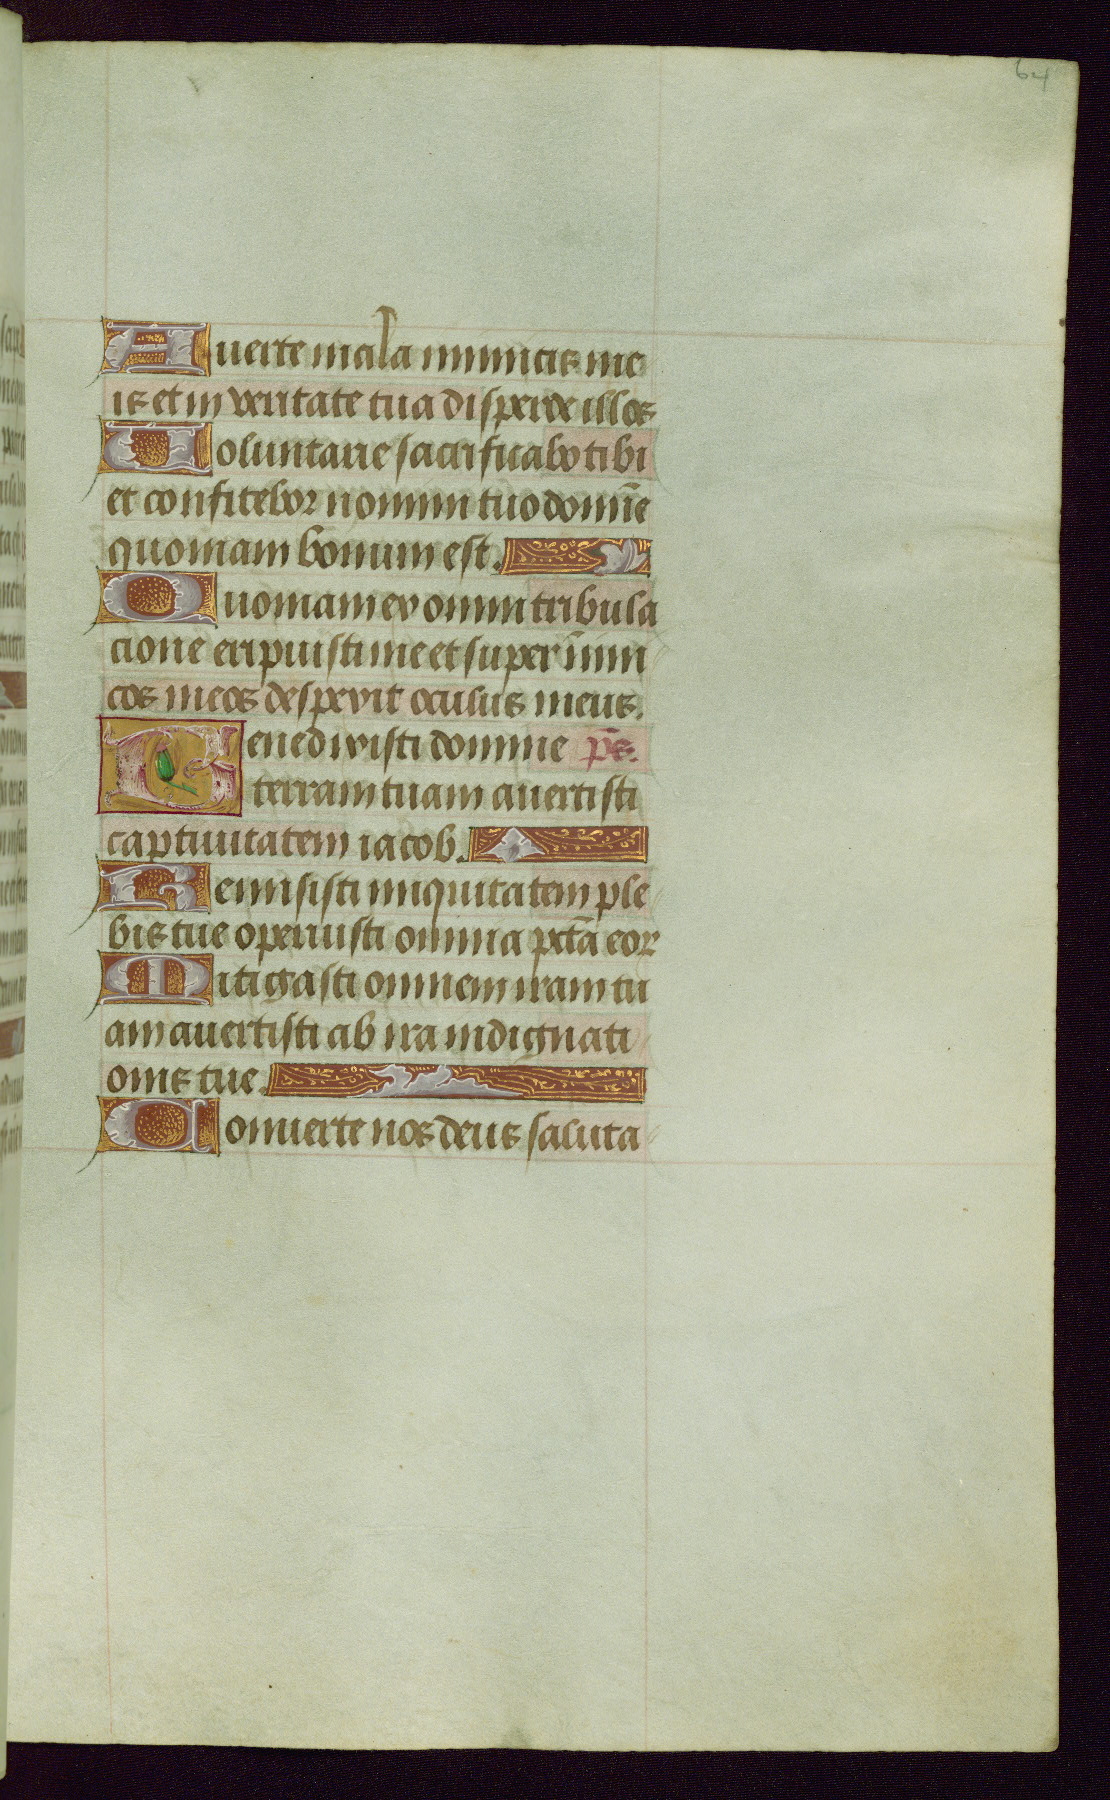 64
Auerte mala inimicis me
is et in veritate tua disperde illos
Voluntarie sacrificabo tibi
et confitebor nomini tuo domīe
quoniam bonum est.
Quoniam ex omni tribula
cione eripuisti me et super inimi
cos meos despexit oculus meus.
Benedixisti domine p̄s.
terram tuam auertisti
captiuitatem iacob.
Remisisti iniquitatem ple
bis tue operuisti omnia pctā eor
Mitigasti omnem iram tu
am auertisti ab ira indignati
onis tue.
Conuerte nos deus saluta